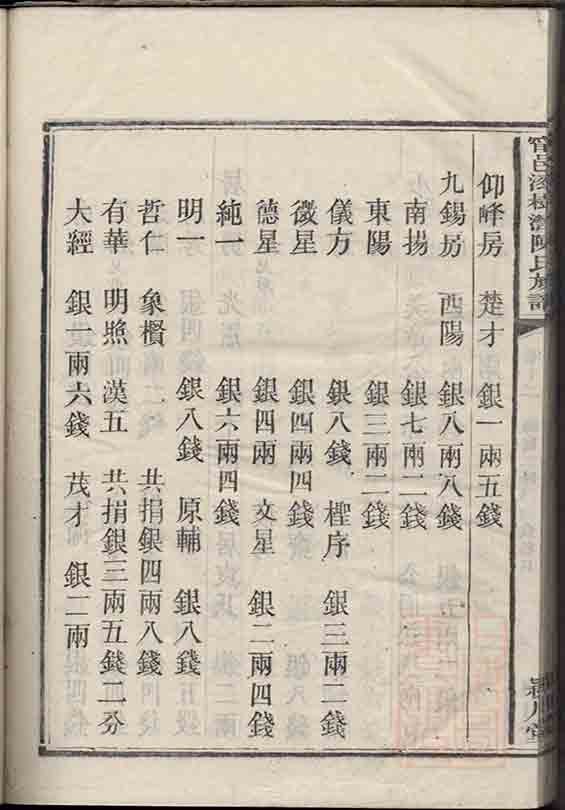 仰峰房 楚才 銀一兩五錢
九錫房 酉陽 銀八兩八錢
南揚 銀七兩二錢
東陽 銀三兩二錢
儀方 銀八錢 桯序 銀三兩二錢
微星 銀四兩四錢
德星 銀四兩 文星 銀二兩四錢
純一 銀六兩四錢
明一 銀八錢 原輔 銀八錢
哲仁 象櫕 共捐銀四兩八錢
有華 明㷖 漢五 共捐銀三兩五錢二分
大經 銀一兩六錢 茂才 銀二兩
陳氏族譜